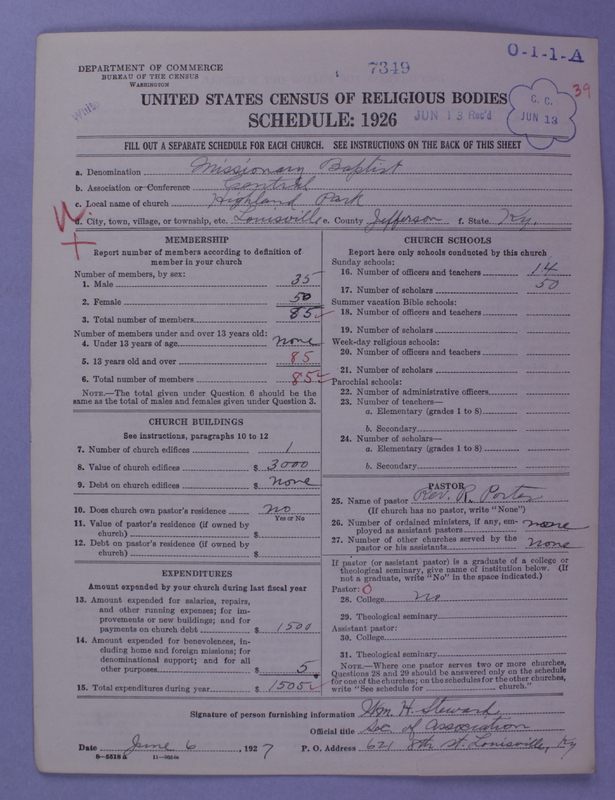 O-1-1-A
DEPARTMENT OF COMMERCE
BUREAU OF THE CENSUS
WASHINGTON
7349
39
UNITED STATES CENSUS OF RELIGIOUS BODIES
SCHEDULE: 1926
JUN 13 Rec'd
C. C.
JUN 13
FILL OUT A SEPARATE SCHEDULE FOR EACH CHURCH. SEE INSTRUCTIONS ON THE BACK OF THIS SHEET
a. Denomination Missionary Baptist
b. Association or Conference Central
c. Local name of church Highland Park
d. City, town, village, or township, etc. Louisville e. County Jefferson f. State Ky.
MEMBERSHIP
Report number of members according to definition of
member in your church
Number of members, by sex:
1. Male 35
2. Female 50
3. Total number of members 85
Number of members under and over 13 years old:
4. Under 13 years of age none
5. 13 years old and over 85
6. Total number of members 85
NOTE.—The total given under Question 6 should be the
same as the total of males and females given under Question 3.
CHURCH BUILDINGS
See instructions, paragraphs 10 to 12
7. Number of church edifices 1
8. Value of church edifices $ 3000
9. Debt on church edifices $ none
10. Does church own pastor's residence? no
Yes or No
11. Value of pastor's residence (if owned by
church) $
12. Debt on pastor's residence (if owned by
church) $
EXPENDITURES
Amount expended by your church during last fiscal year
13. Amount expended for salaries, repairs,
and other running expenses; for im-
provements or new buildings; and for
payments on church debt $ 1500
14. Amount expended for benevolences, in-
cluding home and foreign missions; for
denominational support; and for all
other purposes $ 5.
15. Total expenditures during year $ 1505
CHURCH SCHOOLS
Report here only schools conducted by this church
Sunday schools:
16. Number of officers and teachers 14
17. Number of scholars 50
Summer vacation Bible schools:
18. Number of officers and teachers
19. Number of scholars
Week-day religious schools:
20. Number of officers and teachers
21. Number of scholars
Parochial schools:
22. Number of administrative officers
23. Number of teachers—
a. Elementary (grades 1 to 8)
b. Secondary
24. Number of scholars—
a. Elementary (grades 1 to 8)
b. Secondary
PASTOR
25. Name of pastor Rev. R. Porter
(If church has no pastor, write "None")
26. Number of ordained ministers, if any, em-
ployed as assistant pastors none
27. Number of other churches served by the
pastor or his assistants none
If pastor (or assistant pastor) is a graduate of a college or
theological seminary, give name of institution below. (If
not a graduate, write "No" in the space indicated.)
Pastor: O
28. College no
29. Theological seminary
Assistant pastor:
30. College
31. Theological seminary
NOTE.—Where one pastor serves two or more churches,
Questions 28 and 29 should be answered only on the schedule
for one of the churches; on the schedules for the other churches,
write "See schedule for church."
Signature of person furnishing information Wm. H. Steward
Official title Sec. of Association
Date June 6, 1927 P. O. Address 621 8th st. Louisville, Ky